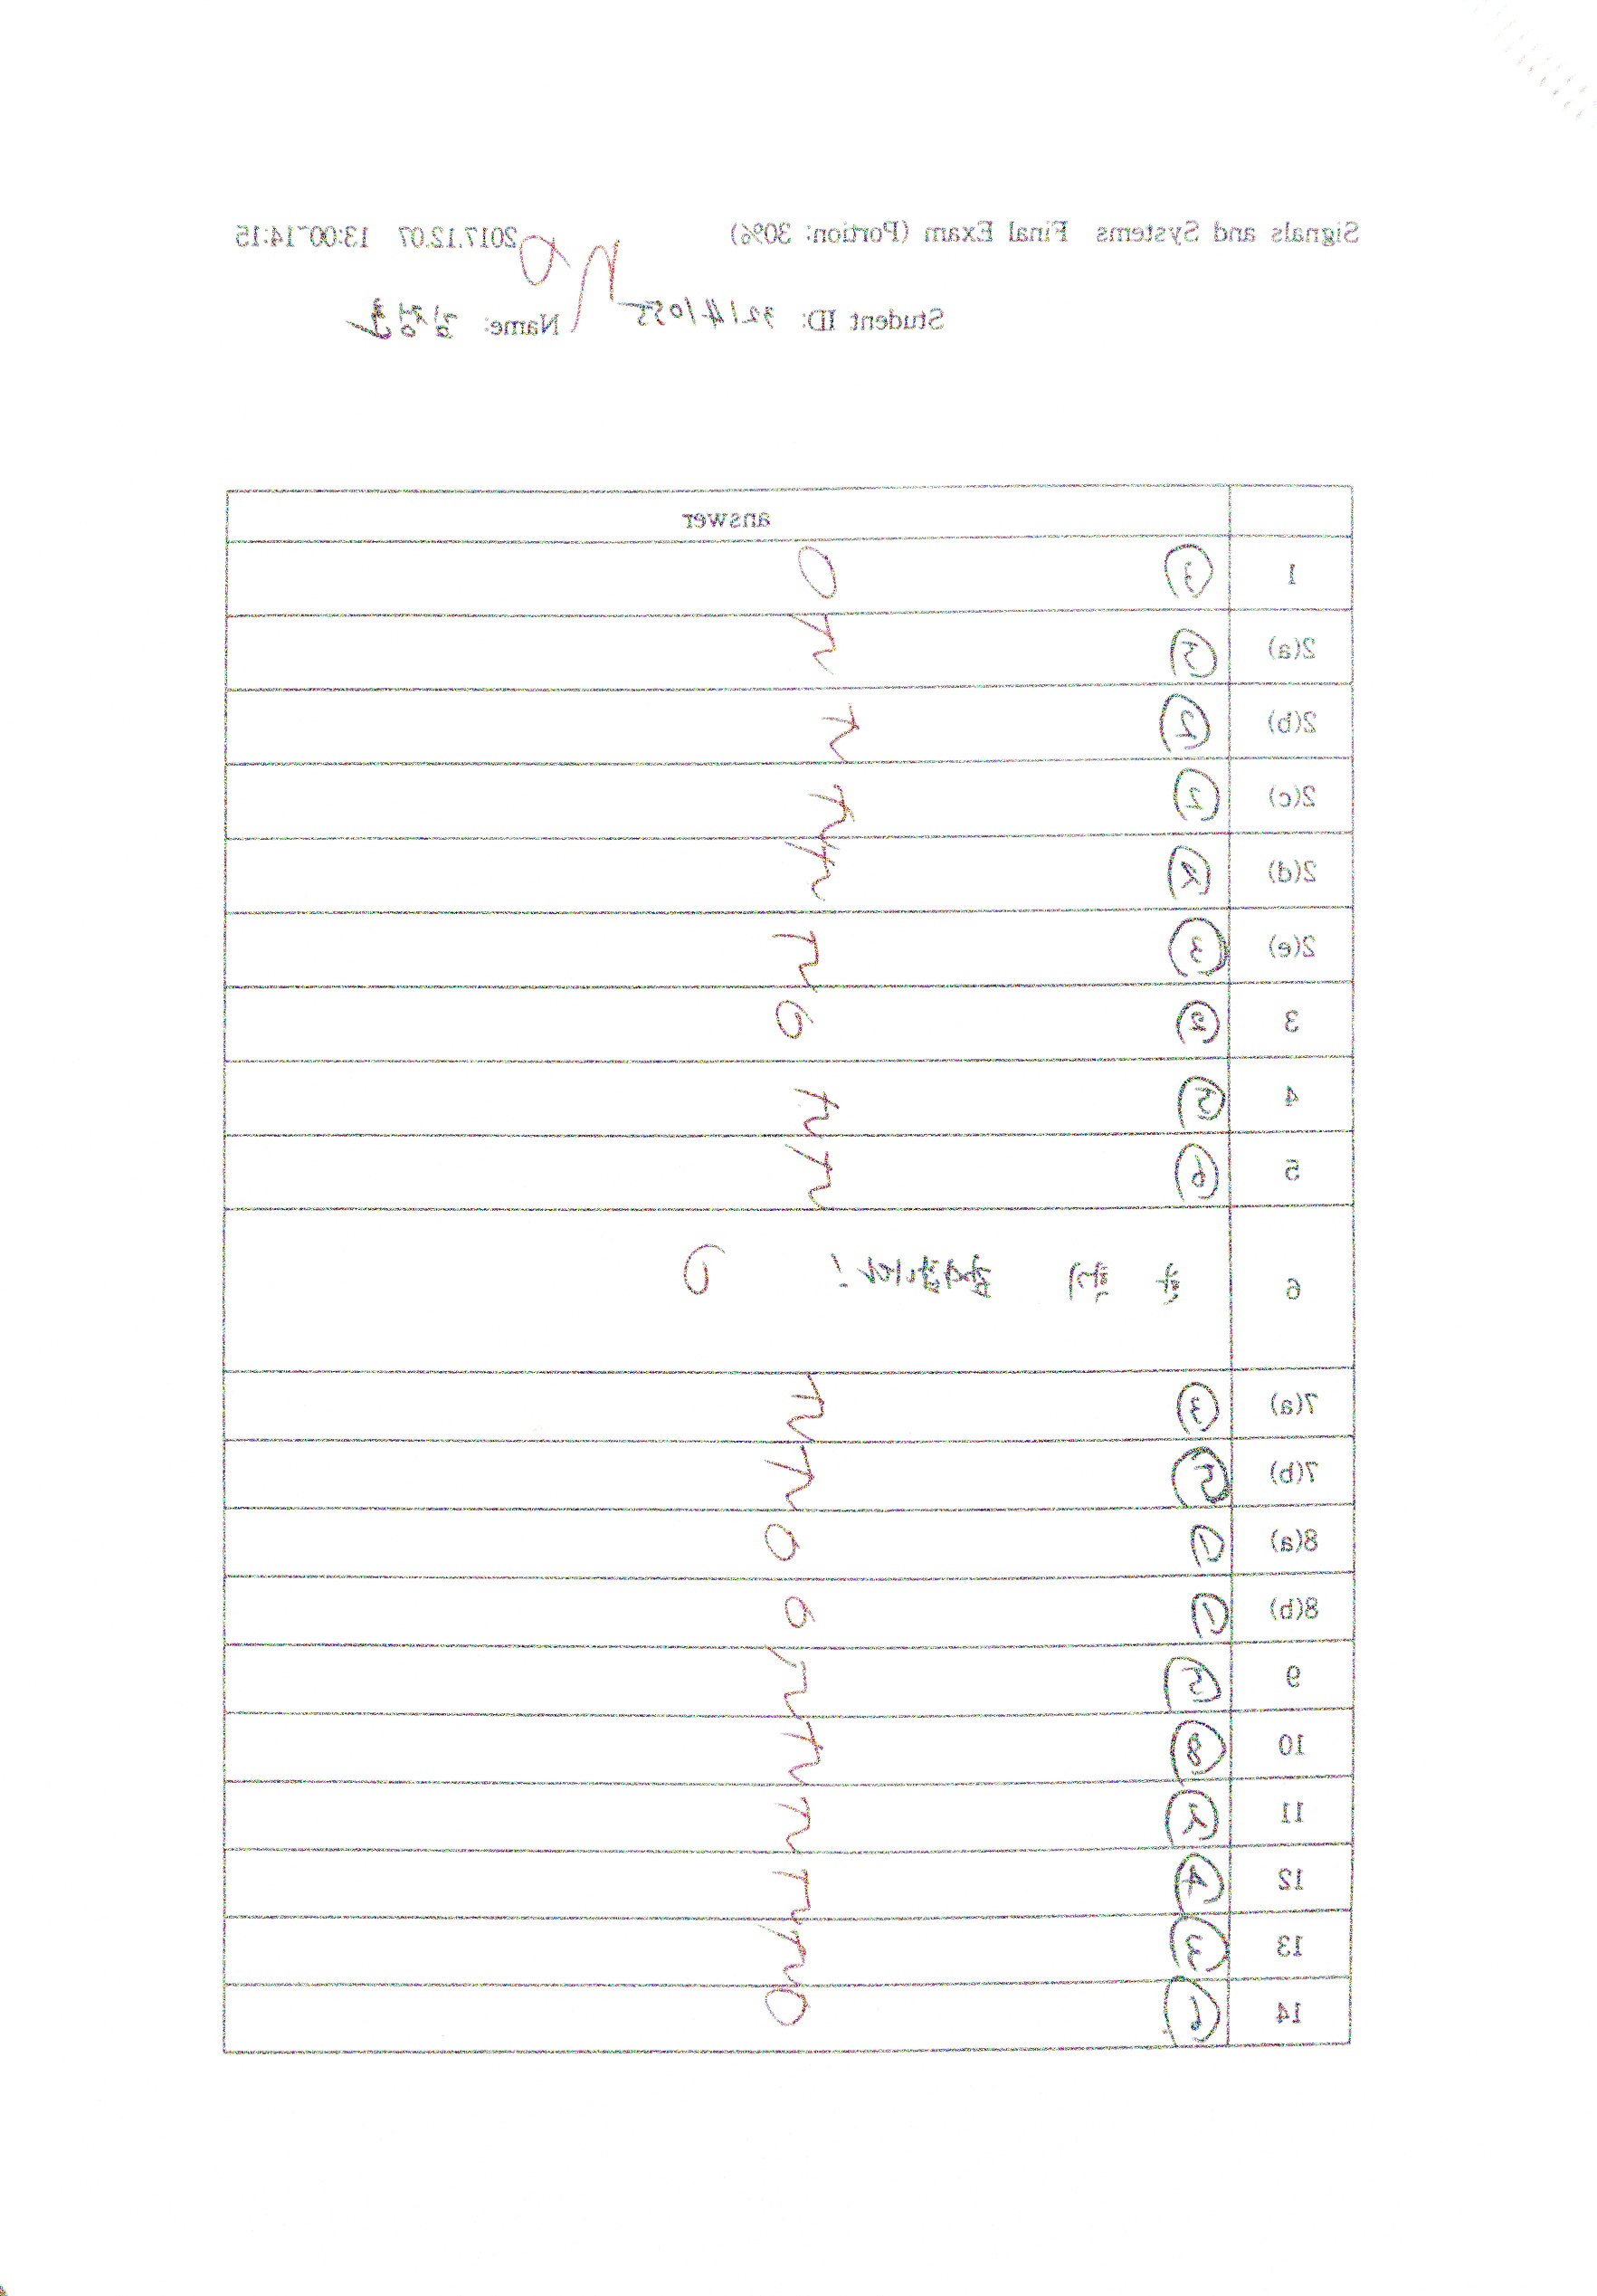 Signals and Systems Final Exam (Portion: 30%) 2017.12.07 13:00~14:15
Student ID: 32141055 Name:
answer
1 ③
2(a) ⑤
2(b) ②
2(c) ②
2(d)
2(e) ③
3 ②
4 ⑤
5 ⑥
6
7(a) ③
7(b) ⑤
8(a) ①
8(b) ①
9 ⑤
10 ⑧
11
12 ④
13 ③
14 ⑥